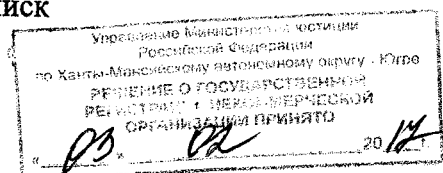 иск
Управление Министерства юстиции
Российской Федерации
по Ханты-Мансийскому автономному округу - Югре
РЕШЕНИЕ О ГОСУДАРСТВЕННОЙ
РЕГИСТРАЦИИ НЕКОММЕРЧЕСКОЙ
ОРГАНИЗАЦИИ ПРИНЯТО
« 03 » 02 20 17 г.